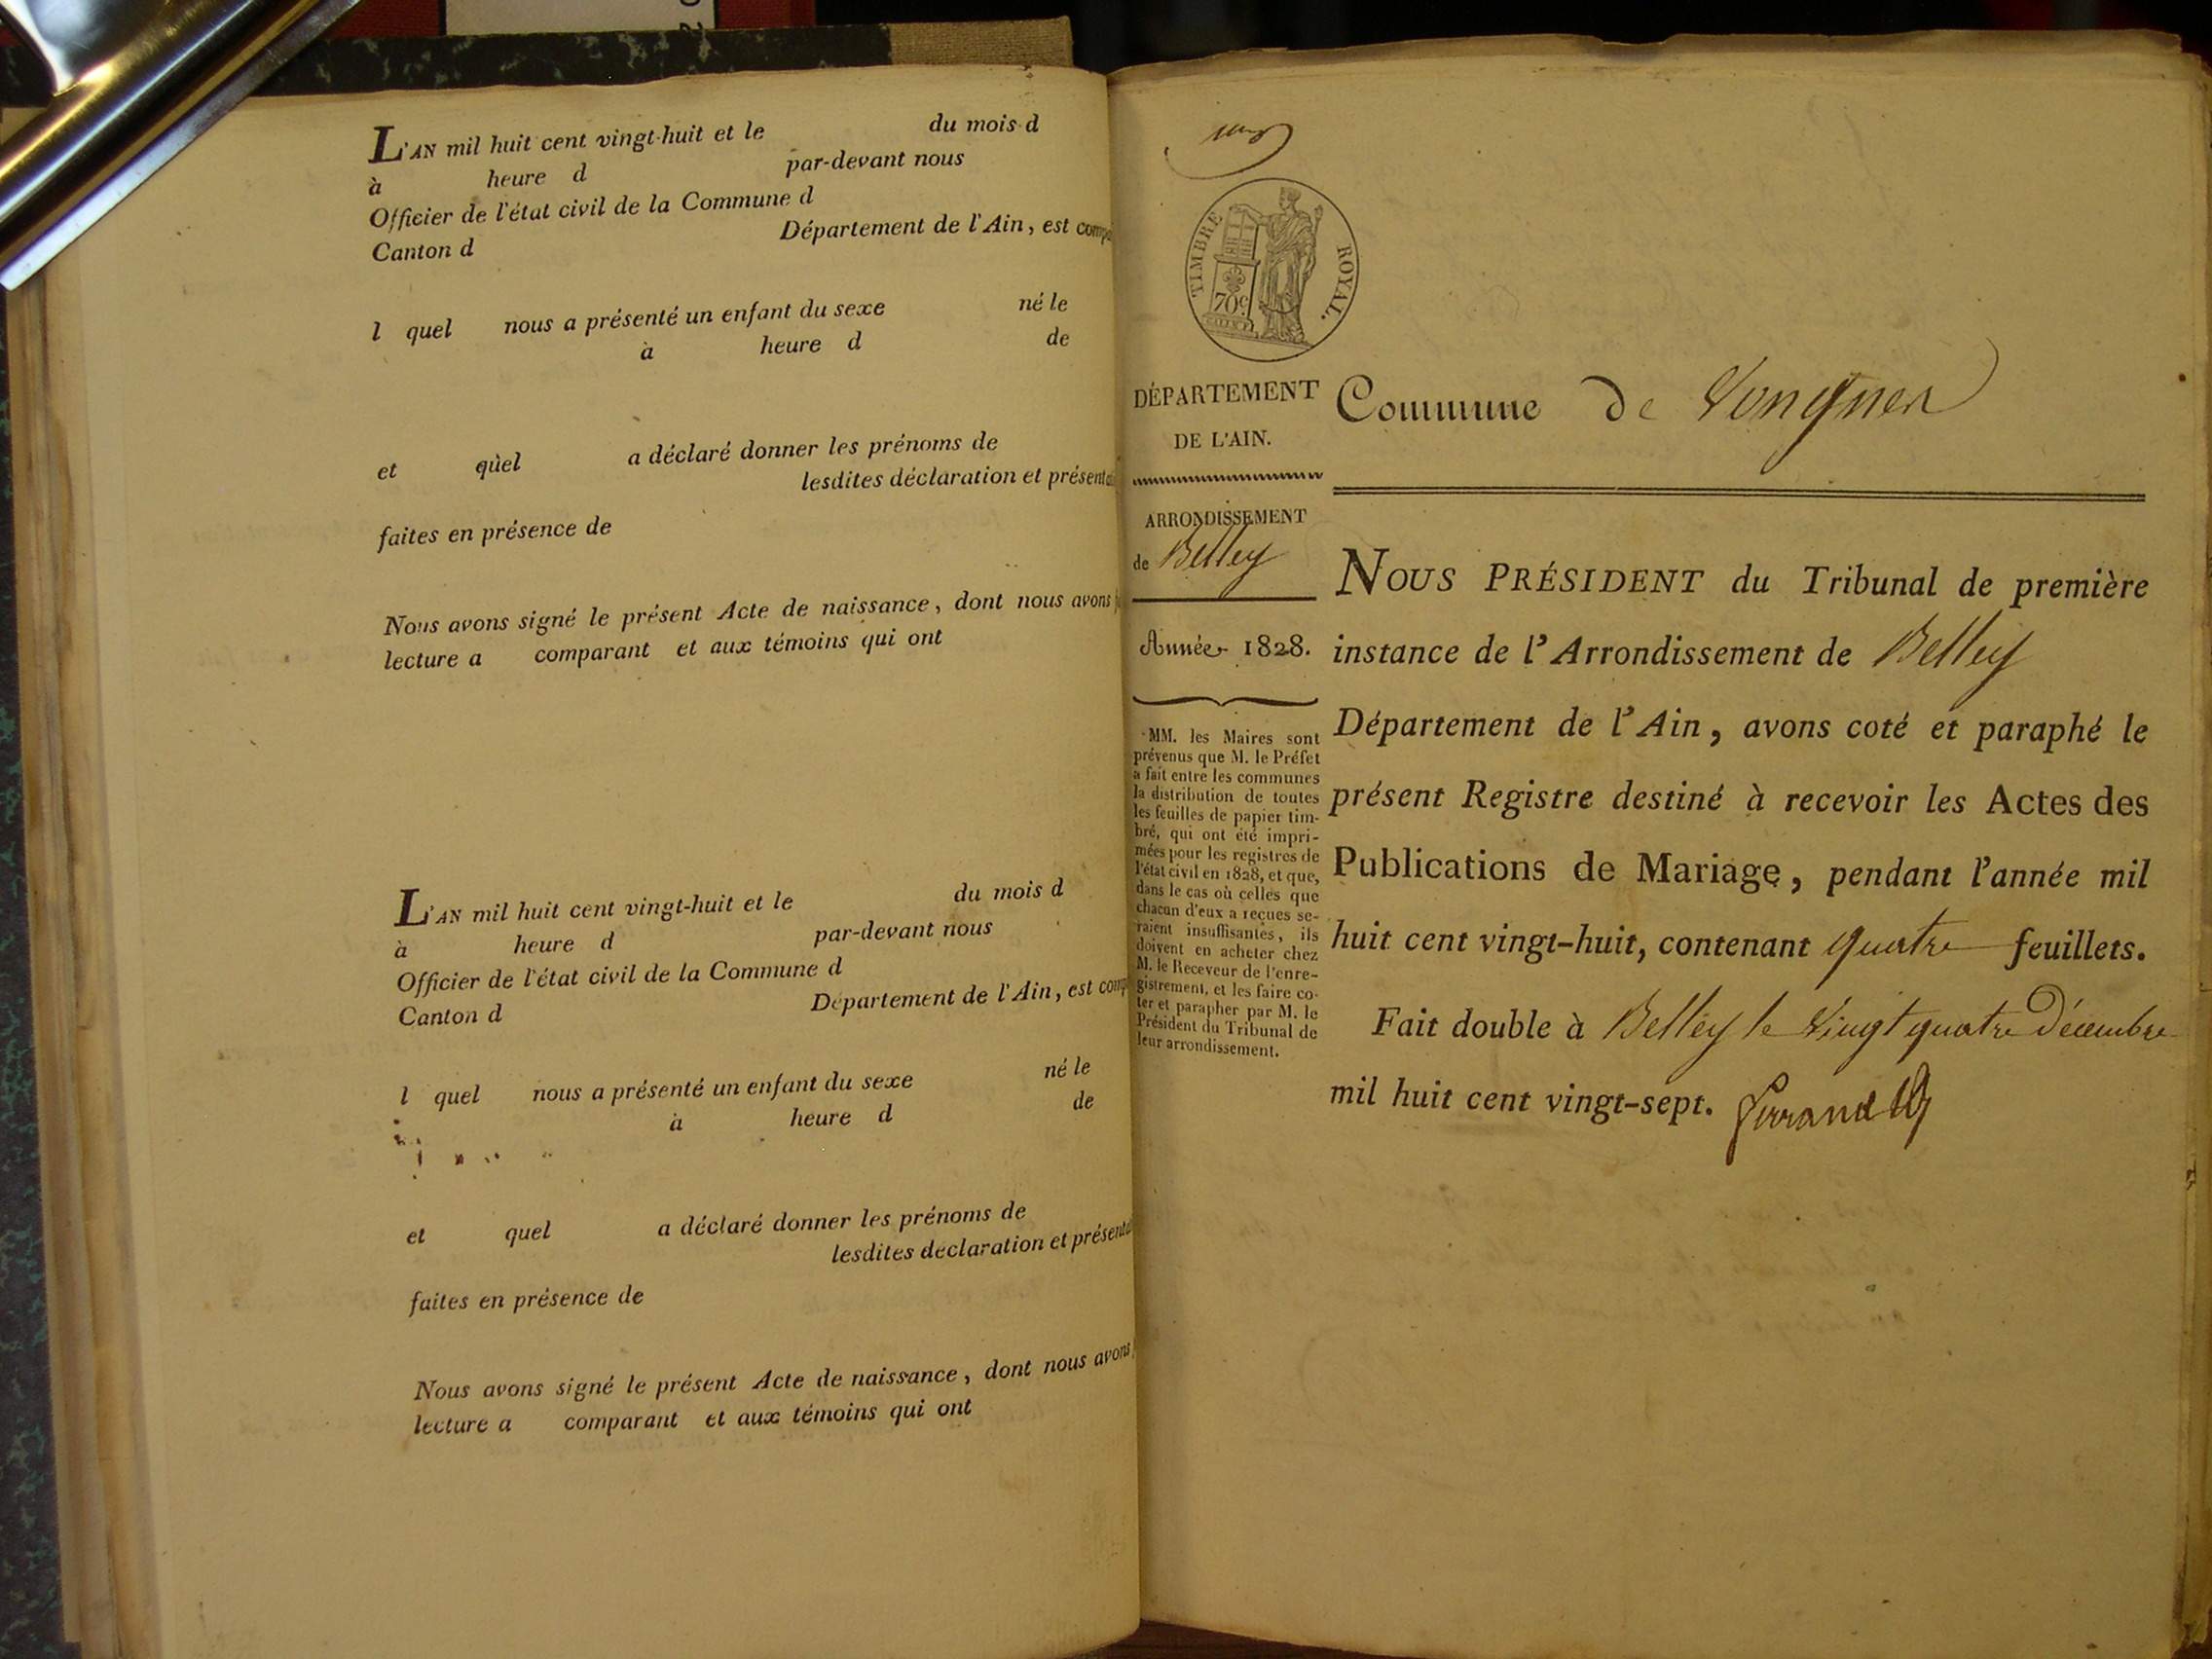 L'AN mil huit cent vingt-huit et le du mois d
à heure d par-devant nous
Officier de l'état civil de la Commune d
Canton d Département de l'Ain, est comp
l quel nous a présenté un enfant du sexe né le
à heure d de
et quel a déclaré donner les prénoms de
lesdites déclaration et présenta
faites en présence de
Nous avons signé le présent Acte de naissance, dont nous avons
lecture a comparant et aux témoins qui ont
L'AN mil huit cent vingt-huit et le du mois d
à heure d par-devant nous
Officier de l'état civil de la Commune d
Canton d Département de l'Ain, est comp
l quel nous a présenté un enfant du sexe né le
à heure d de
et quel a déclaré donner les prénoms de
lesdites declaration et présenta
faites en présence de
Nous avons signé le présent Acte de naissance, dont nous avons
lecture a comparant et aux témoins qui ont
TIMBRE ROYAL.
70c
DÉPARTEMENT
DE L'AIN.
ARRONDISSEMENT
de Belley
Année 1828.
MM. les Maires sont
prévenus que M. le Préfet
a fait entre les communes
la distribution de toutes
les feuilles de papier tim-
bré, qui ont été impri-
mées pour les registres de
l'état civil en 1828, et que,
dans le cas où celles que
chacun d'eux a reçues se-
raient insuffisantes, ils
doivent en acheter chez
M. le Receveur de l'enre-
gistrement, et les faire co-
ter et parapher par M. le
Président du Tribunal de
leur arrondissement.
Commune de Vongnes
NOUS PRÉSIDENT du Tribunal de première
instance de l'Arrondissement de Belley
Département de l'Ain, avons coté et paraphé le
présent Registre destiné à recevoir les Actes des
Publications de Mariage, pendant l'année mil
huit cent vingt-huit, contenant quatre feuillets.
Fait double à Belley le Vingt quatre Décembre
mil huit cent vingt-sept.